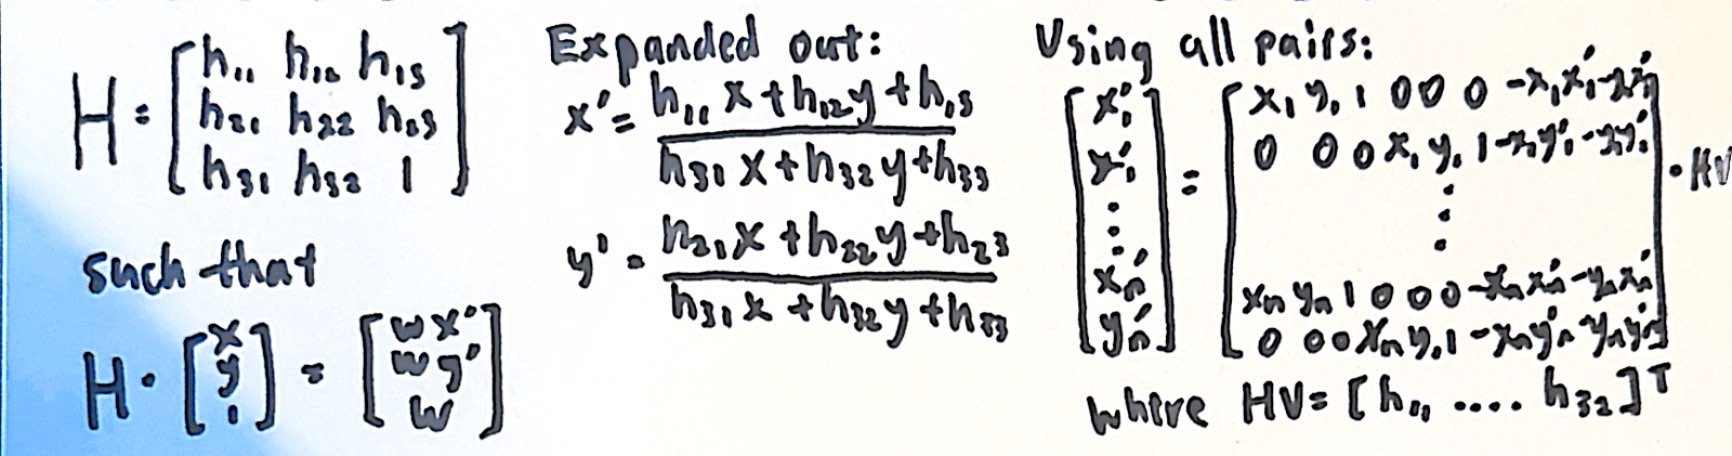 H = [h₁₁ h₁₂ h₁₃
h₂₁ h₂₂ h₂₃
h₃₁ h₃₂ 1]
such that
H · [x y 1] = [wx' wy' w]
Expanded out:
x' = (h₁₁x + h₁₂y + h₁₃) / (h₃₁x + h₃₂y + h₃₃)
y' = (h₂₁x + h₂₂y + h₂₃) / (h₃₁x + h₃₂y + h₃₃)
Using all pairs:
[x₁' y₁' ⋮ xₙ' yₙ'] = [x₁ y₁ 1 0 0 0 -x₁x₁' -y₁x₁'
0 0 0 x₁ y₁ 1 -x₁y₁' -y₁y₁'
⋮
xₙ yₙ 1 0 0 0 -xₙxₙ' -yₙxₙ'
0 0 0 xₙ yₙ 1 -xₙyₙ' -yₙyₙ'] · HV
where HV = [h₁₁ .... h₃₂]ᵀ